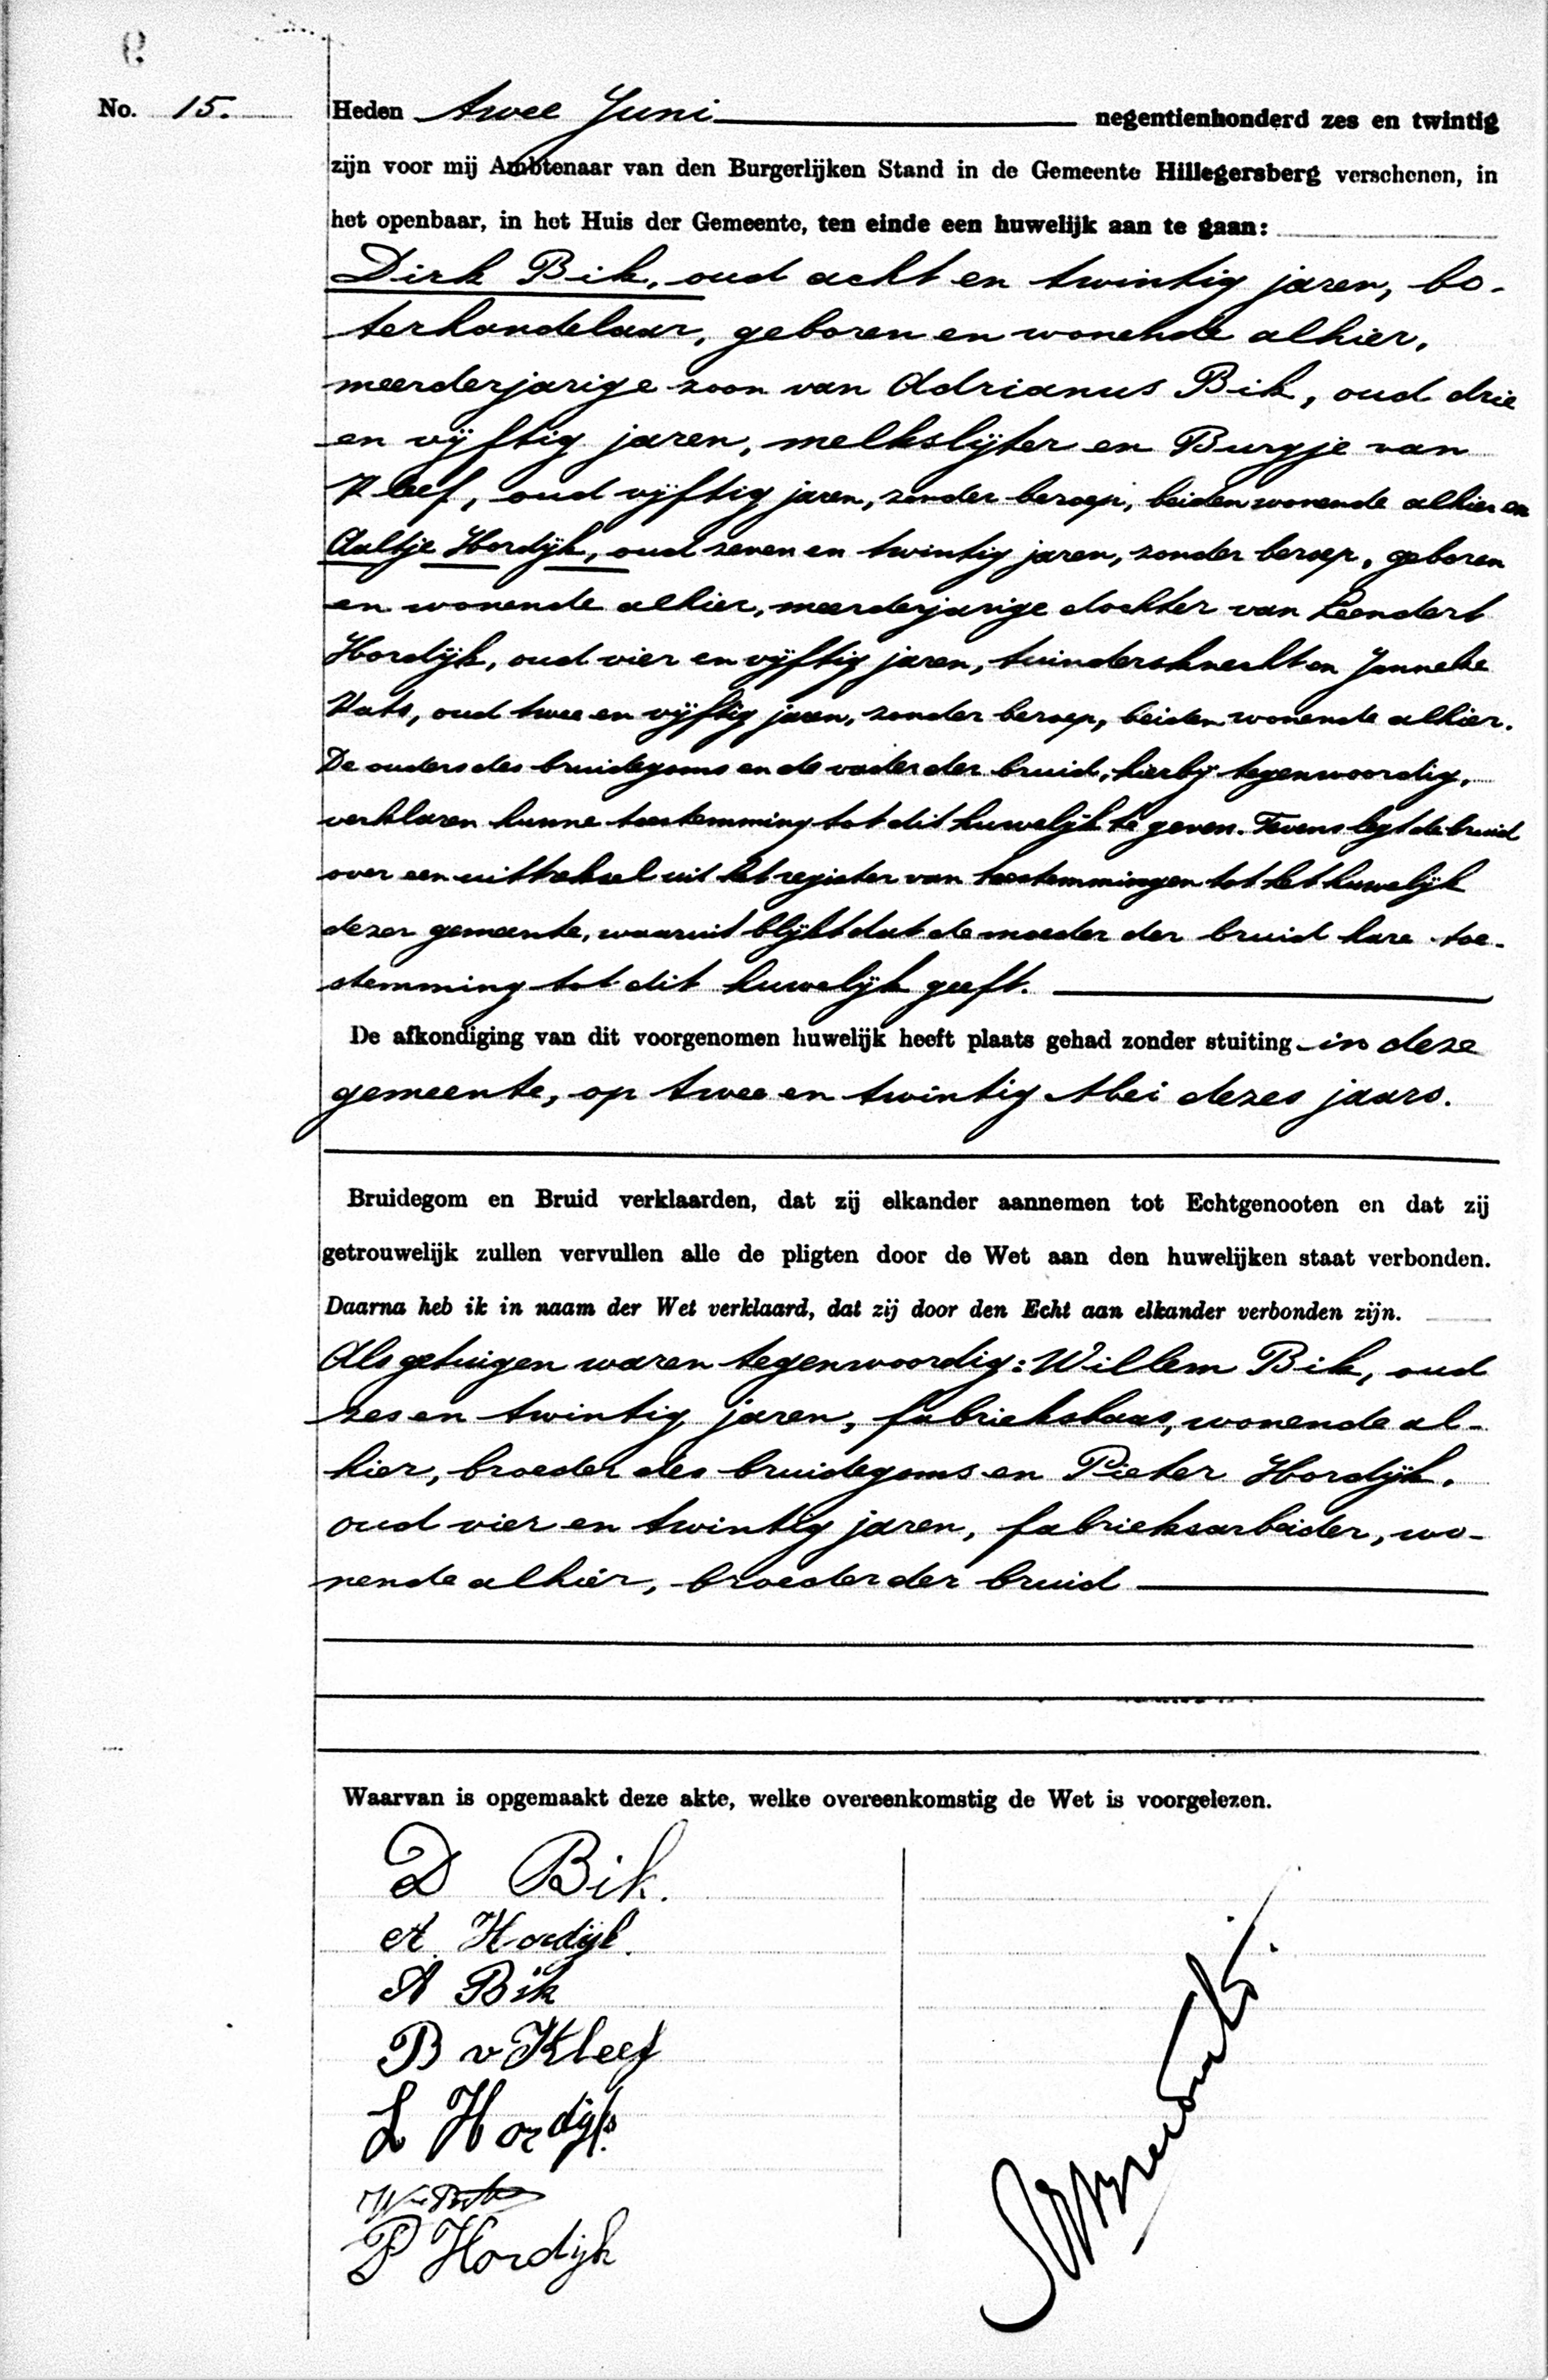 No. 15.
Heden twee Juni negentienhonderd zes en twintig
zijn voor mij Ambtenaar van den Burgerlijken Stand in de Gemeente Hillegersberg verschenen, in
het openbaar, in het Huis der Gemeente, ten einde een huwelijk aan te gaan:
Dirk Bik, oud acht en twintig jaren, bo-
terhandelaar, geboren en wonende alhier,
meerderjarige zoon van Adrianus Bik, oud drie
en vijftig jaren, melkslijter en Burgje van
Kleef, oud vijftig jaren, zonder beroep, beiden wonende alhier en
Aaltje Hordijk, oud zeven en twintig jaren, zonder beroep, geboren
en wonende alhier, meerderjarige dochter van Leendert
Hordijk, oud vier en vijftig jaren, tuindersknecht en Janneke
Kats, oud twee en vijftig jaren, zonder beroep, beiden wonende alhier.
De ouders des bruidegoms en de vader der bruid, hierbij tegenwoordig,
verklaren hunne toestemming tot dit huwelijk te geven. Tevens legt de bruid
over een uittreksel uit het register van toestemmingen tot het huwelijk
dezer gemeente, waaruit blijkt dat de moeder der bruid hare toe-
stemming tot dit huwelijk geeft.
De afkondiging van dit voorgenomen huwelijk heeft plaats gehad zonder stuiting in deze
gemeente, op twee en twintig Mei dezes jaars.
Bruidegom en Bruid verklaarden, dat zij elkander aannemen tot Echtgenooten en dat zij
getrouwelijk zullen vervullen alle de pligten door de Wet aan den huwelijken staat verbonden.
Daarna heb ik in naam der Wet verklaard, dat zij door den Echt aan elkander verbonden zijn.
Als getuigen waren tegenwoordig: Willem Bik, oud
zes en twintig jaren, fabrieksbaas, wonende al-
hier, broeder des bruidegoms en Pieter Hordijk,
oud vier en twintig jaren, fabrieksarbeider, wo-
nende alhier, broeder der bruid
Waarvan is opgemaakt deze akte, welke overeenkomstig de Wet is voorgelezen.
D Bik.
A. Hordijk.
A Bik
B v Kleef
L Hordijk
P Hordijk